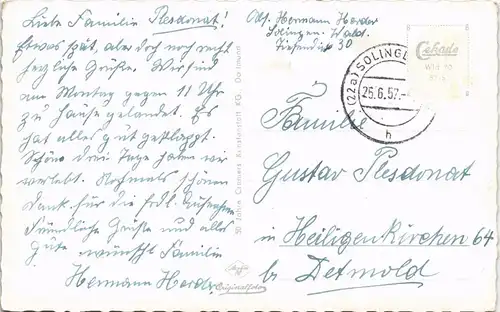 Liebe Familie Plesdonat!
Etwas spät, aber doch noch recht
herzliche Grüße. Wir sind
am Montag gegen 11 Uhr
zu Hause gelandet. Es
hat alles gut geklappt.
Schöne drei Tage haben wir
verlebt. Nochmals schönen
Dank für die frdl. Aufnahme
Freundliche Grüße und alles
Gute wünscht Familie
Hermann Herder
Abs. Hermann Herder
Solingen-Wald.
30
Cekade
(22a) SOLINGEN
25.6.57.
h
Familie
Gustav Plesdonat
in Heiligenkirchen 64
b/ Detmold
30 Jahre Cramers Kunstanstalt KG. Dortmund
Agfa
Originalfoto